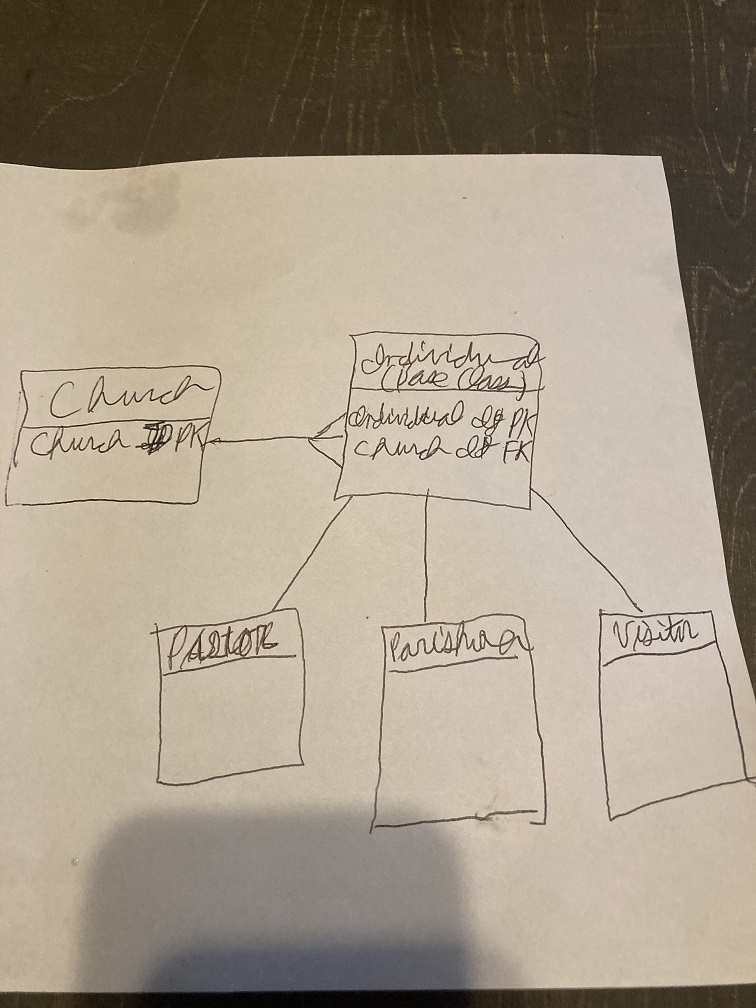 Church
Church ID PK
Individual
(Base Class)
Individual Id PK
Church Id FK
Pastor
Parishioner
Visitor